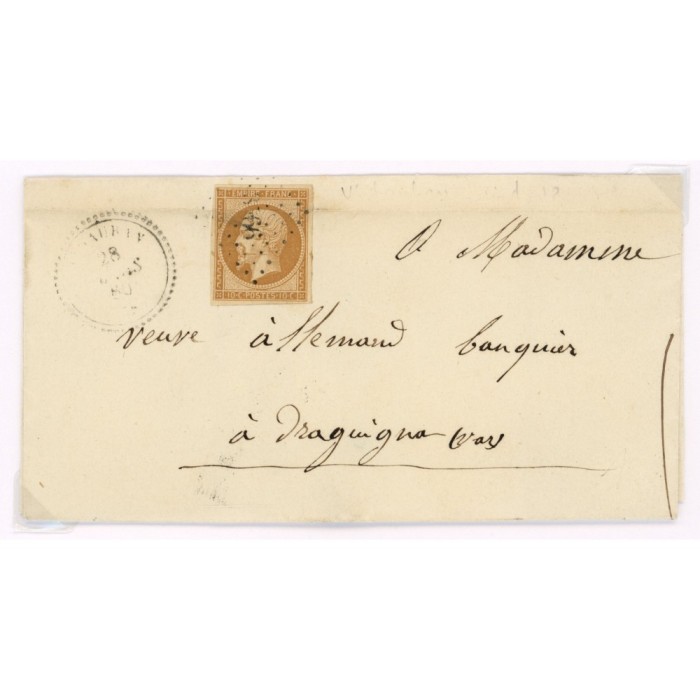 EMPIRE FRANC
10·C·POSTES·10·C
28
MARS
60
A Madamme
veuve àllemand banquier
à draguigna (var)